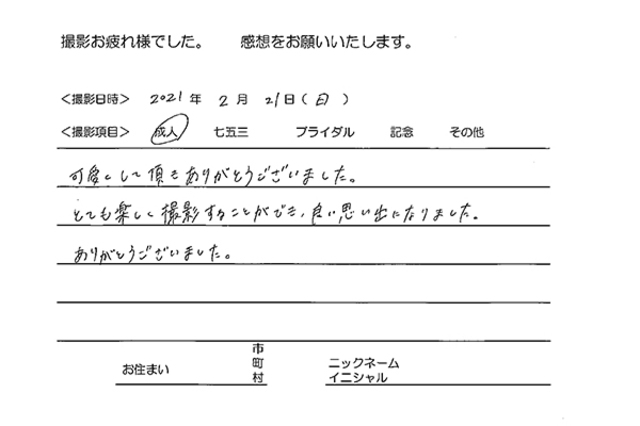 撮影お疲れ様でした。 感想をお願いいたします。
<撮影日時> 2021年 2月 21日(日)
<撮影項目> 成人 七五三 ブライダル 記念 その他
可愛くして頂きありがとうございました。
とても楽しく撮影することができ、良い思い出になりました。
ありがとうございました。
お住まい 市町村 ニックネーム イニシャル